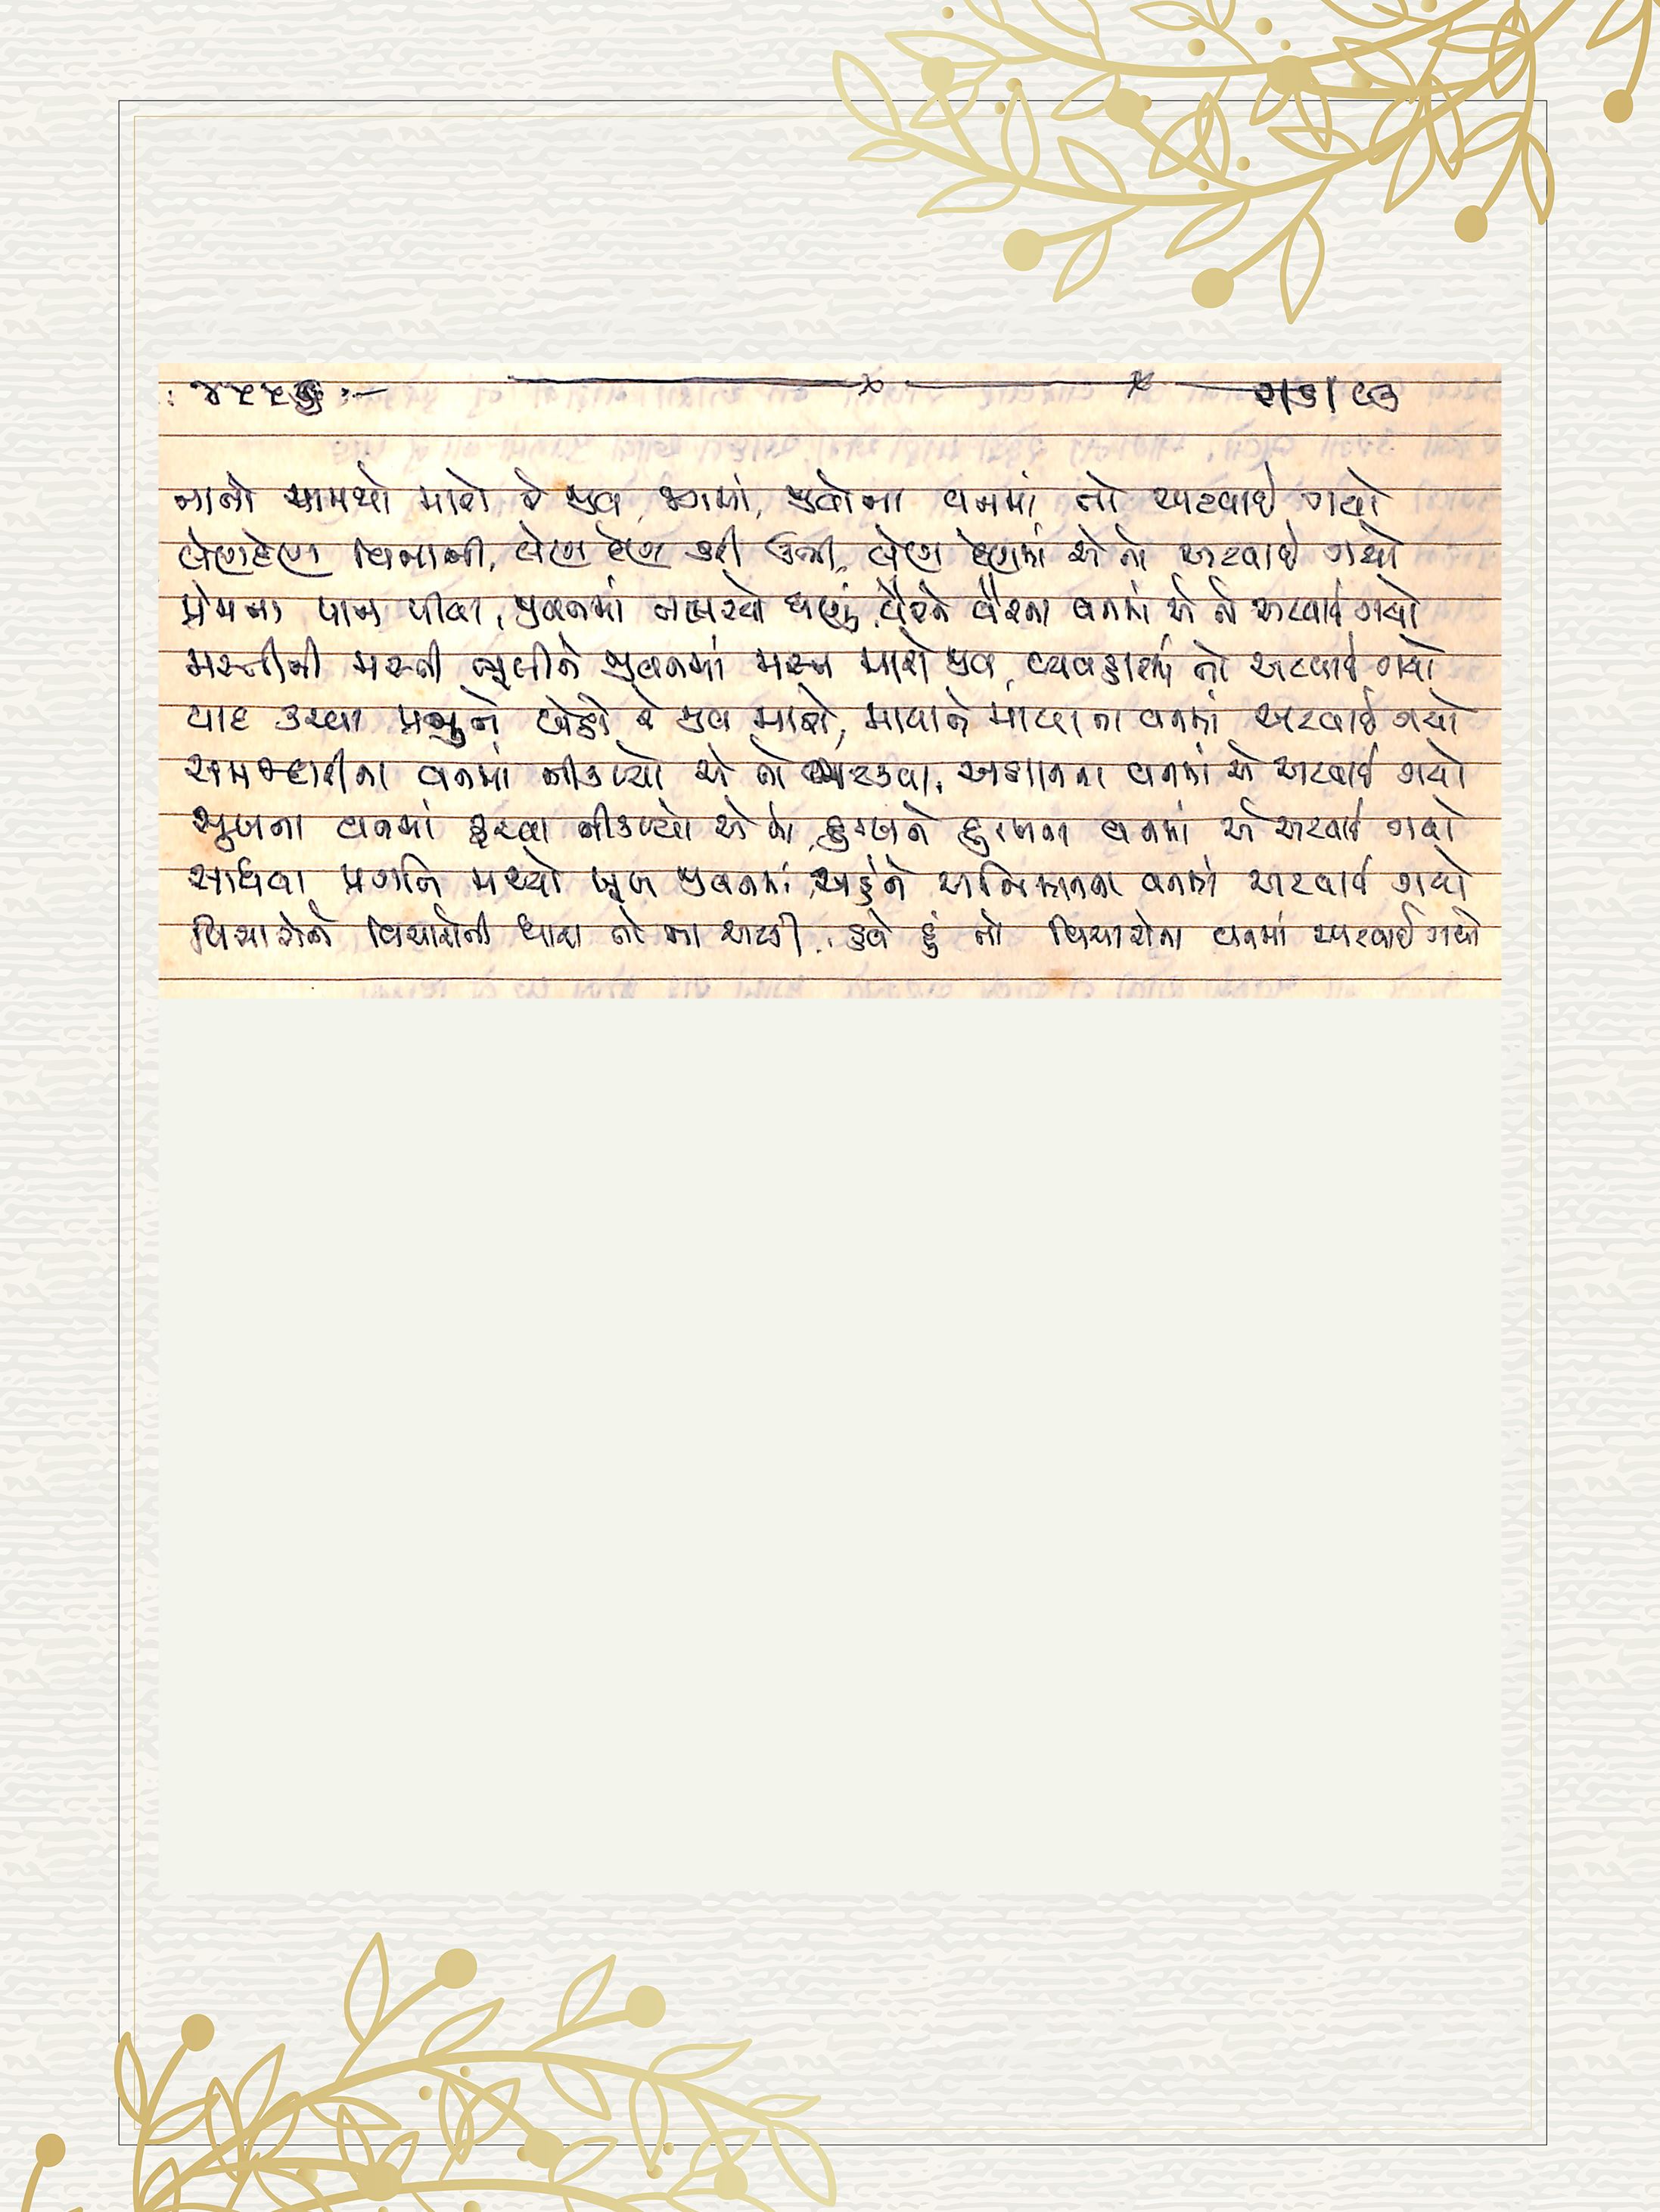 : ૪૬૬૬૭ :- ૨/૩/૯૩
નાનો આમથો મારો રે જીવ, જગમાં, જીવોના વનમાં તો અટવાઈ ગયો
લેણદેણ વિનાની, લેણ દેણ કરી ઊભી, લેણ દેણમાં એ તો અટવાઈ ગયો
પ્રેમના પાન પીવા, જીવનમાં તલસ્યો ઘણું, વૈરને વૈરના વનમાં એ તો અટવાઈ ગયો
મસ્તીની મસ્તી ભૂલીને જીવનમાં મસ્ત મારો જીવ, વ્યવહારમાં તો અટવાઈ ગયો
યાદ કરવા પ્રભુને બેઠો રે જીવ મારો, માયાને માયાના વનમાં અટવાઈ ગયો
સમજદારીના વનમાં નીકળ્યો એ તો ભટકવા, અજ્ઞાનના વનમાં એ અટવાઈ ગયો
સુખના વનમાં ફરવા નીકળ્યો એ તો, દુઃખને દુઃખના વનમાં એ અટવાઈ ગયો
સાધવા પ્રગતિ મથ્યો ખૂબ જીવનમાં, અહંને અભિમાનના વનમાં અટવાઈ ગયો
વિચારોને વિચારોની ધારા તો ના અટકી, હવે હું તો વિચારોના વનમાં અટવાઈ ગયો